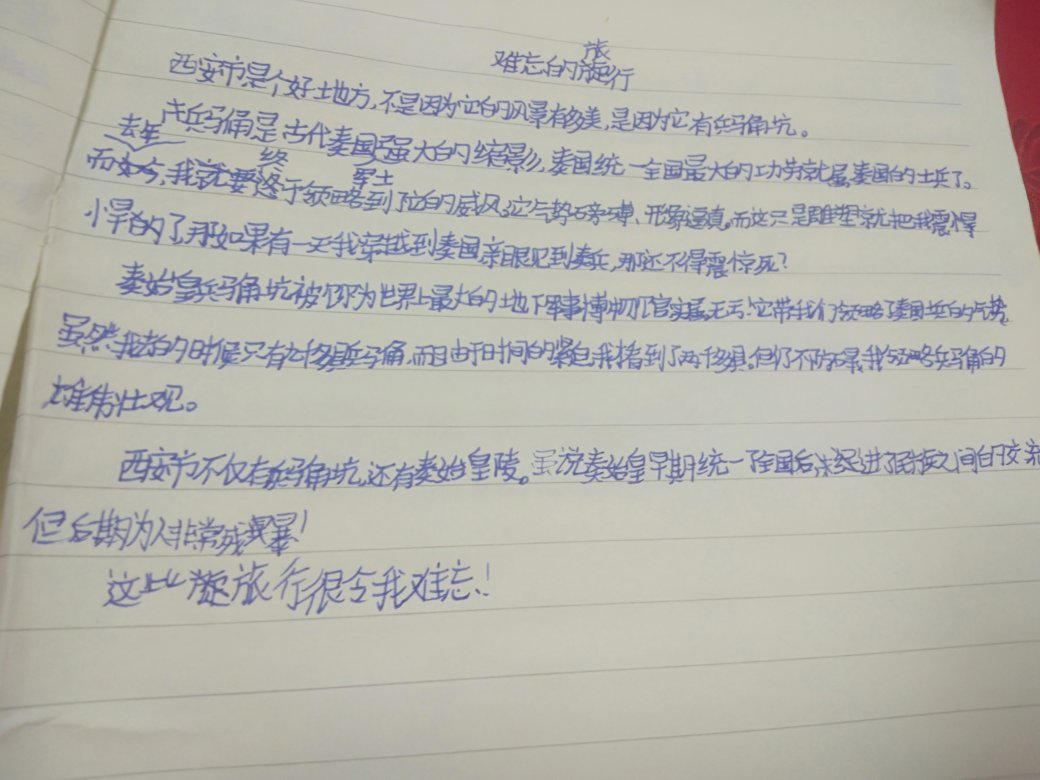 难忘的旅行
西安市是个好地方,不是因为它的风景有多美,是因为它有兵马俑坑。
兵马俑是古代秦国强大的缩影,秦国统一全国最大的功劳就属秦国的士兵了。
而去年,我终于领略到了军士的威风。它气势磅礴、形象逼真。而这只是雕塑就把我震惊
了,那如果有一天我穿越到秦国亲眼见到秦兵,那还不得震惊死?
秦始皇兵马俑坑被称为世界上最大的地下军事博物馆实属无亏!它带我们领略了秦国兵的气势。
虽然我去的时候只有 兵马俑,而且由于时间的 我 看到了两 。但仍不妨碍我领略兵马俑的
雄伟壮观。
西安市不仅有兵马俑坑,还有秦始皇陵。虽说秦始皇早期统一了全国后,促进了 之间的交流
但后期为人非常残暴!
这此旅行很令我难忘!